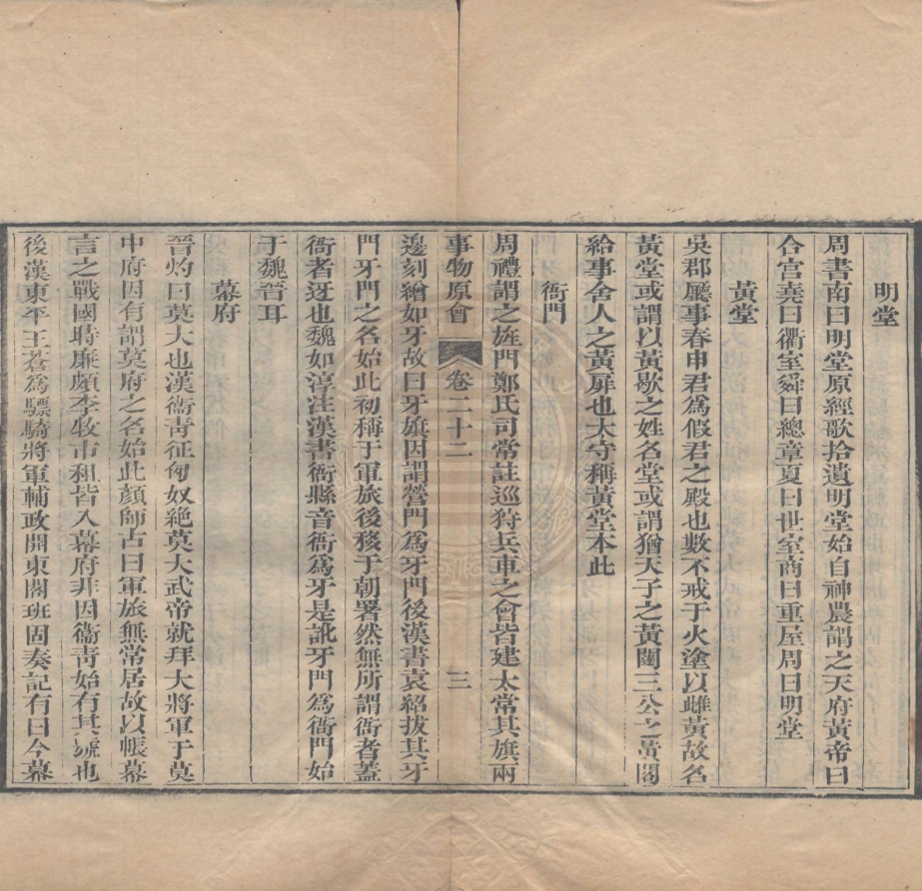 明堂
周書南曰明堂原經歌拾遺明堂始自神農謂之天府黃帝曰
合宮堯曰衢室舜曰總章夏曰世室商曰重屋周曰明堂
黃堂
吳郡廳事春申君為假君之殿也數不戒于火塗以雌黃故名
黃堂或謂以黃歇之姓名堂或謂猶天子之黃闥三公之黃閣
給事舍人之黃扉也大守稱黃堂本此
衙門
周禮謂之旌門鄭氏司常註巡狩兵車之會皆建太常其旗兩
事物原會 卷二十二 三
邊刻繪如牙故曰牙旗因謂營門為牙門後漢書袁紹拔其牙
門牙門之名始此初稱于軍旅後移于朝署然無所謂衙者蓋
衙者迓也魏如淳注漢書衙縣音衙為牙是訛牙門為衙門始
于魏晉耳
幕府
晉灼曰莫大也漢衞青征匈奴絶莫大武帝就拜大將軍于莫
中府因有謂莫府之名始此顏師古曰軍旅無常居故以帳幕
言之戰國時廉頗李牧市租皆入幕府非因衞青始有其號也
後漢東平王蒼為驃騎將軍輔政開東閣班固奏記有曰今幕